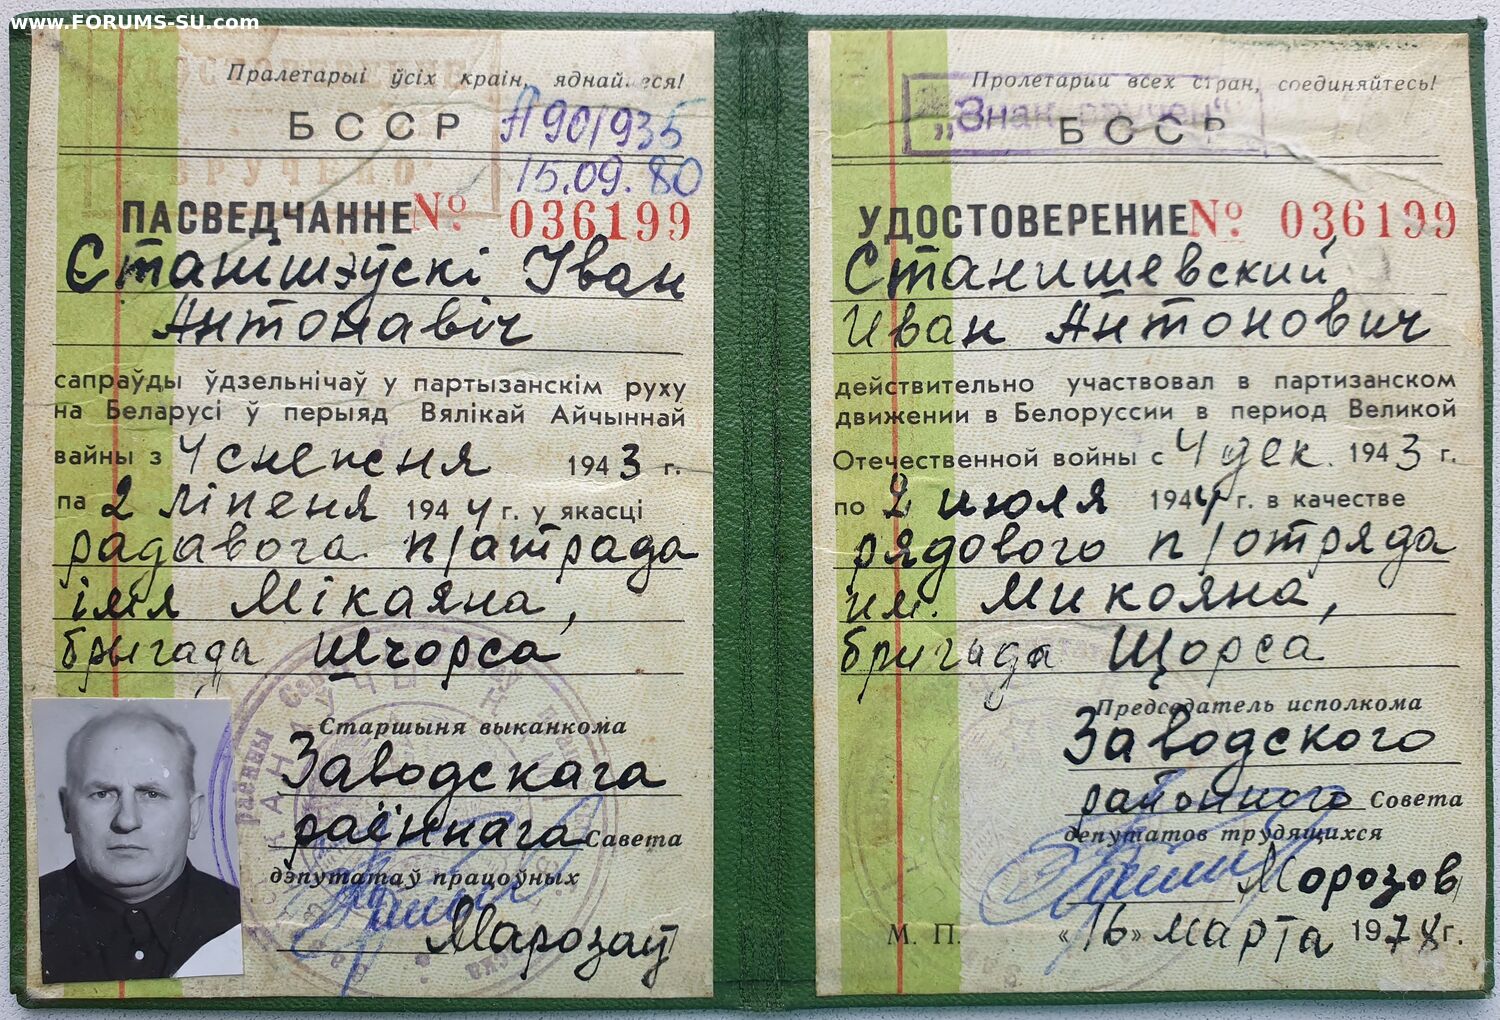 www.FORUMS-SU.com
Пралетарыі ўсіх краін, яднайцеся!
БССР
А901935
15.09.80
ВРУЧЕНО
ПАСВЕДЧАННЕ № 036199
Станішэўскі Іван
Антонавіч
сапраўды ўдзельнічаў у партызанскім руху
на Беларусі ў перыяд Вялікай Айчыннай
вайны з 4 снежня 1943 г.
па 2 ліпеня 1944 г. у якасці
радавога п/атрада
імя Мікаяна,
брыгада Шчорса
Старшыня выканкома
Заводскага
раённага Савета
дэпутатаў працоўных
Марозаў
Пролетарии всех стран, соединяйтесь!
„Знак вручен“
БССР
УДОСТОВЕРЕНИЕ № 036199
Станишевский
Иван Антонович
действительно участвовал в партизанском
движении в Белоруссии в период Великой
Отечественной войны с 4 дек. 1943 г.
по 2 июля 1944 г. в качестве
рядового п/отряда
им. Микояна,
бригада Щорса
Председатель исполкома
Заводского
районного Совета
депутатов трудящихся
Морозов
М. П. «16» марта 1978 г.